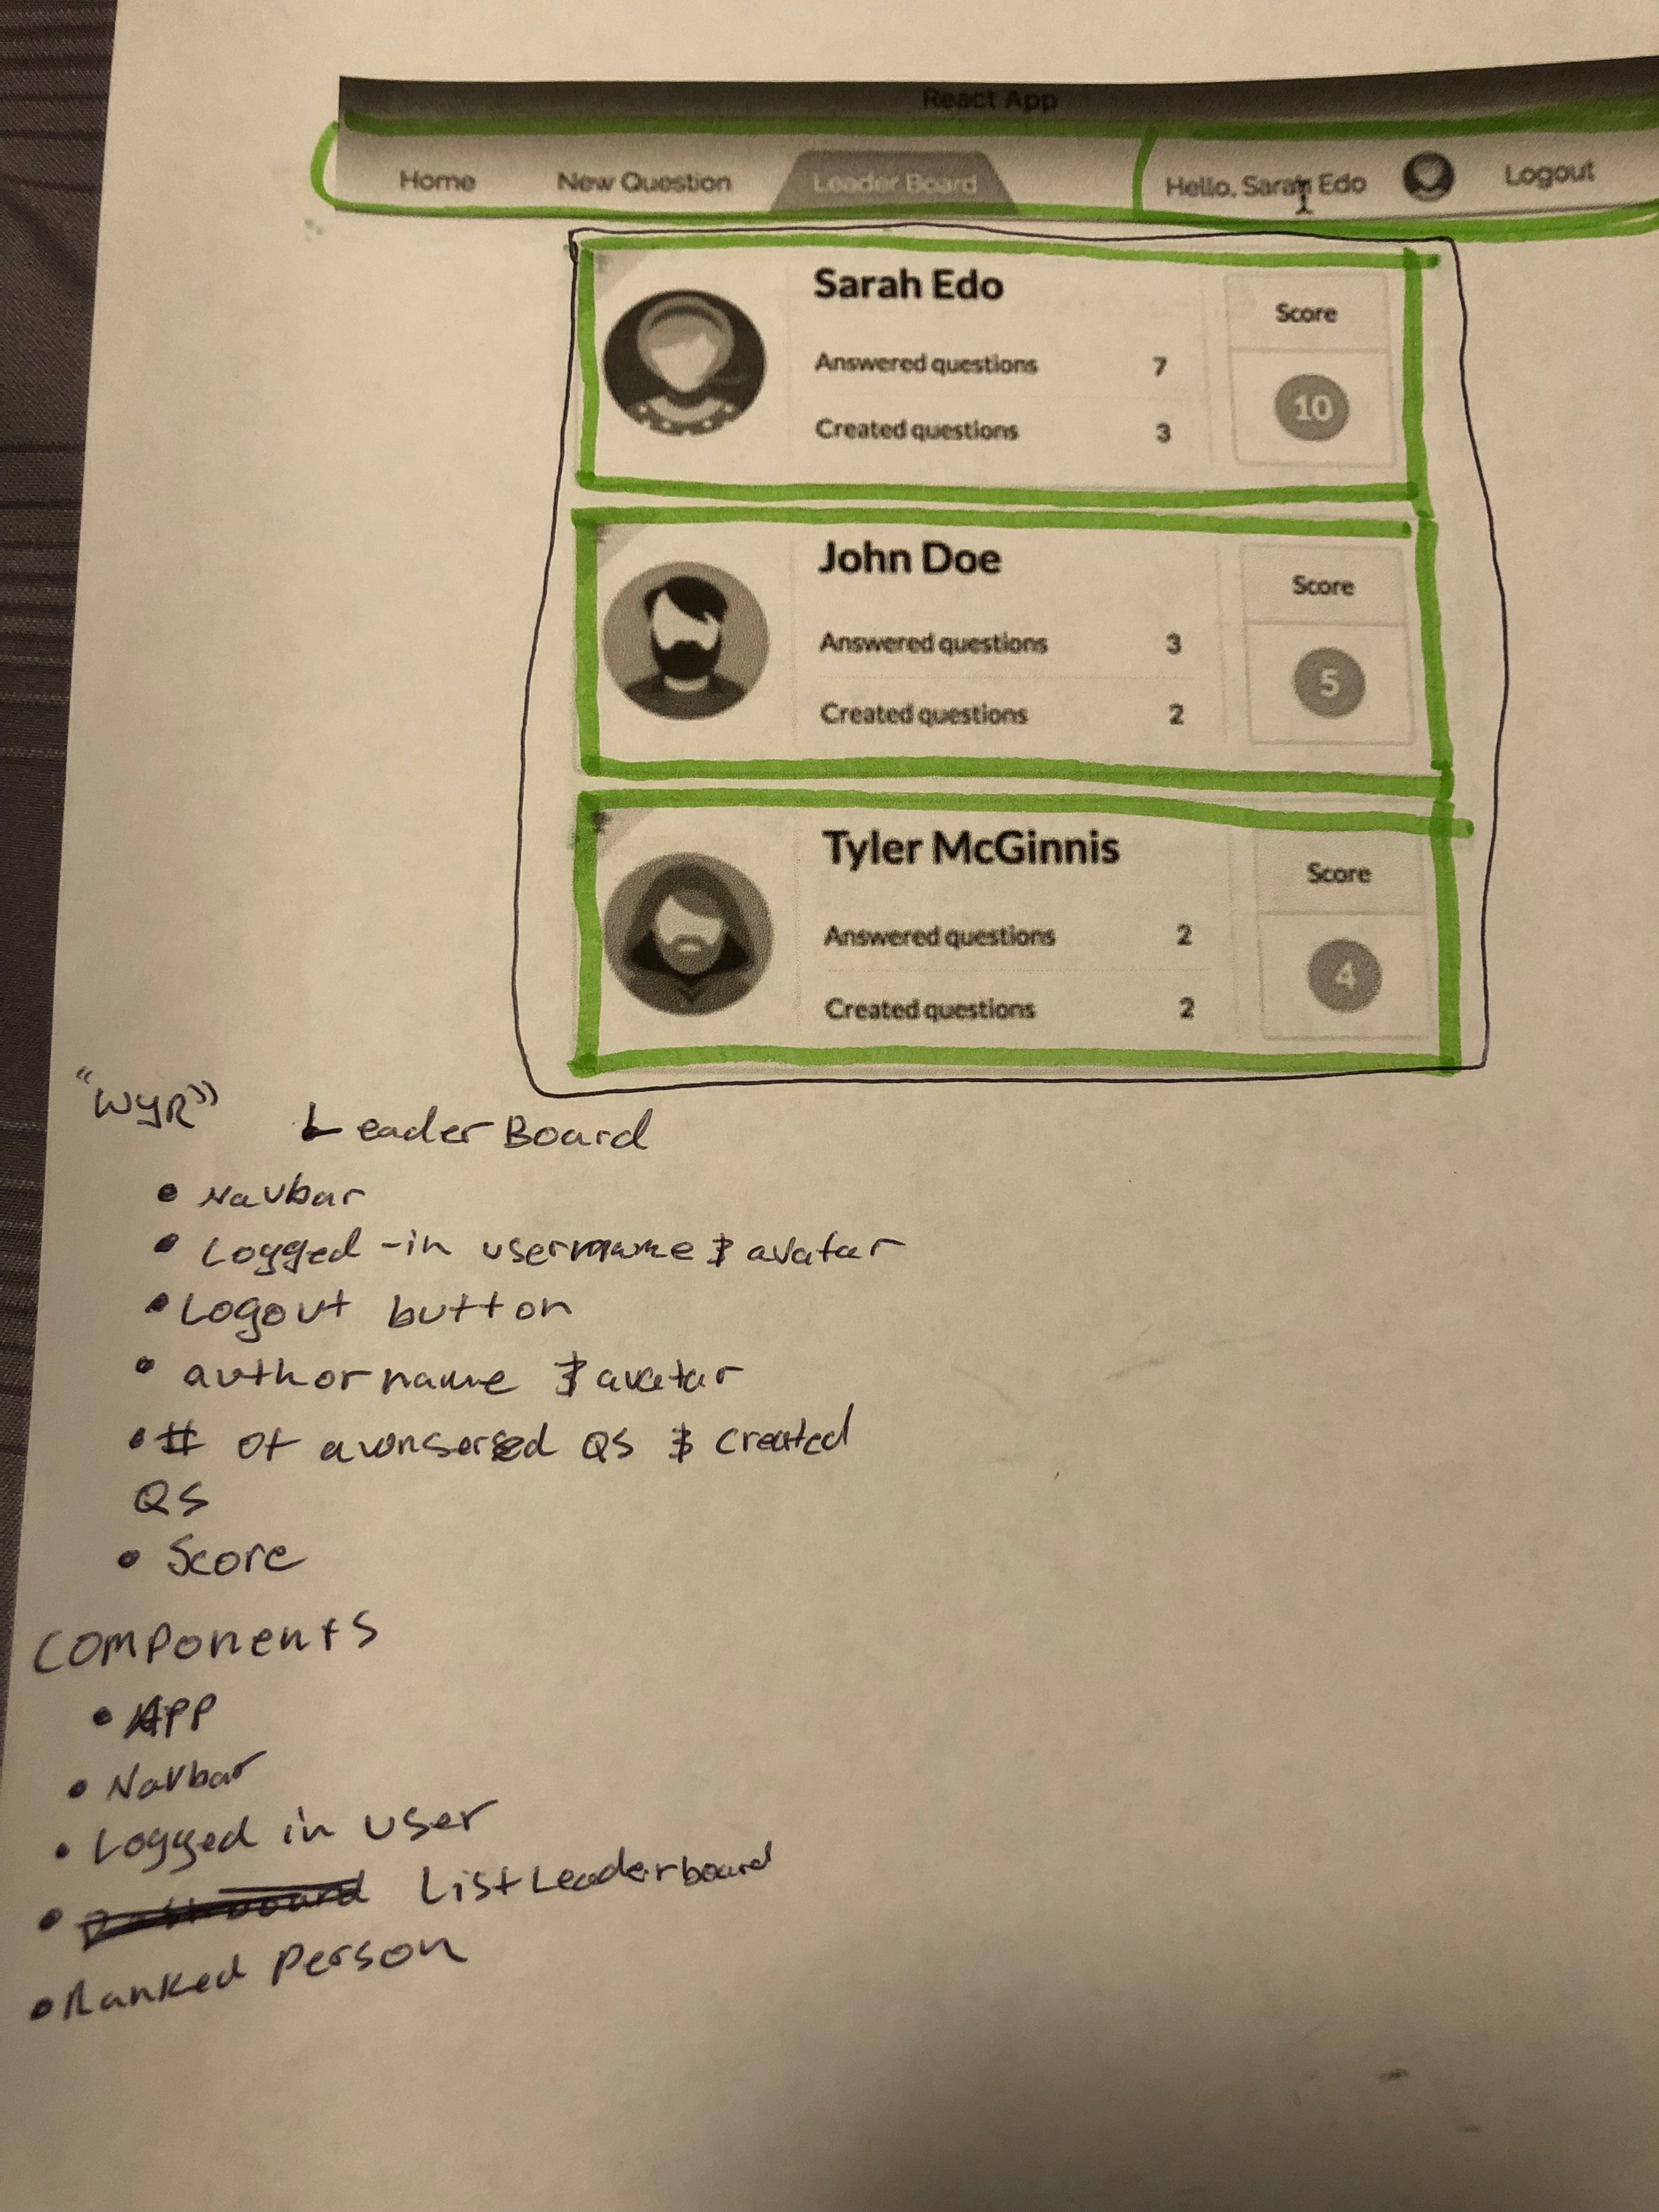 React App
Home New Question Leader Board Hello, Sarah Edo Logout
Sarah Edo
Score
Answered questions 7
10
Created questions 3
John Doe
Score
Answered questions 3
5
Created questions 2
Tyler McGinnis
Score
Answered questions 2
4
Created questions 2
"WYR"
Leader Board
• Navbar
• Logged-in username & avatar
• Logout button
• author name & avatar
• # of awnsersed QS & created
QS
• Score
Components
• App
• Navbar
• Logged in user
• List Leaderboard
• Ranked Person